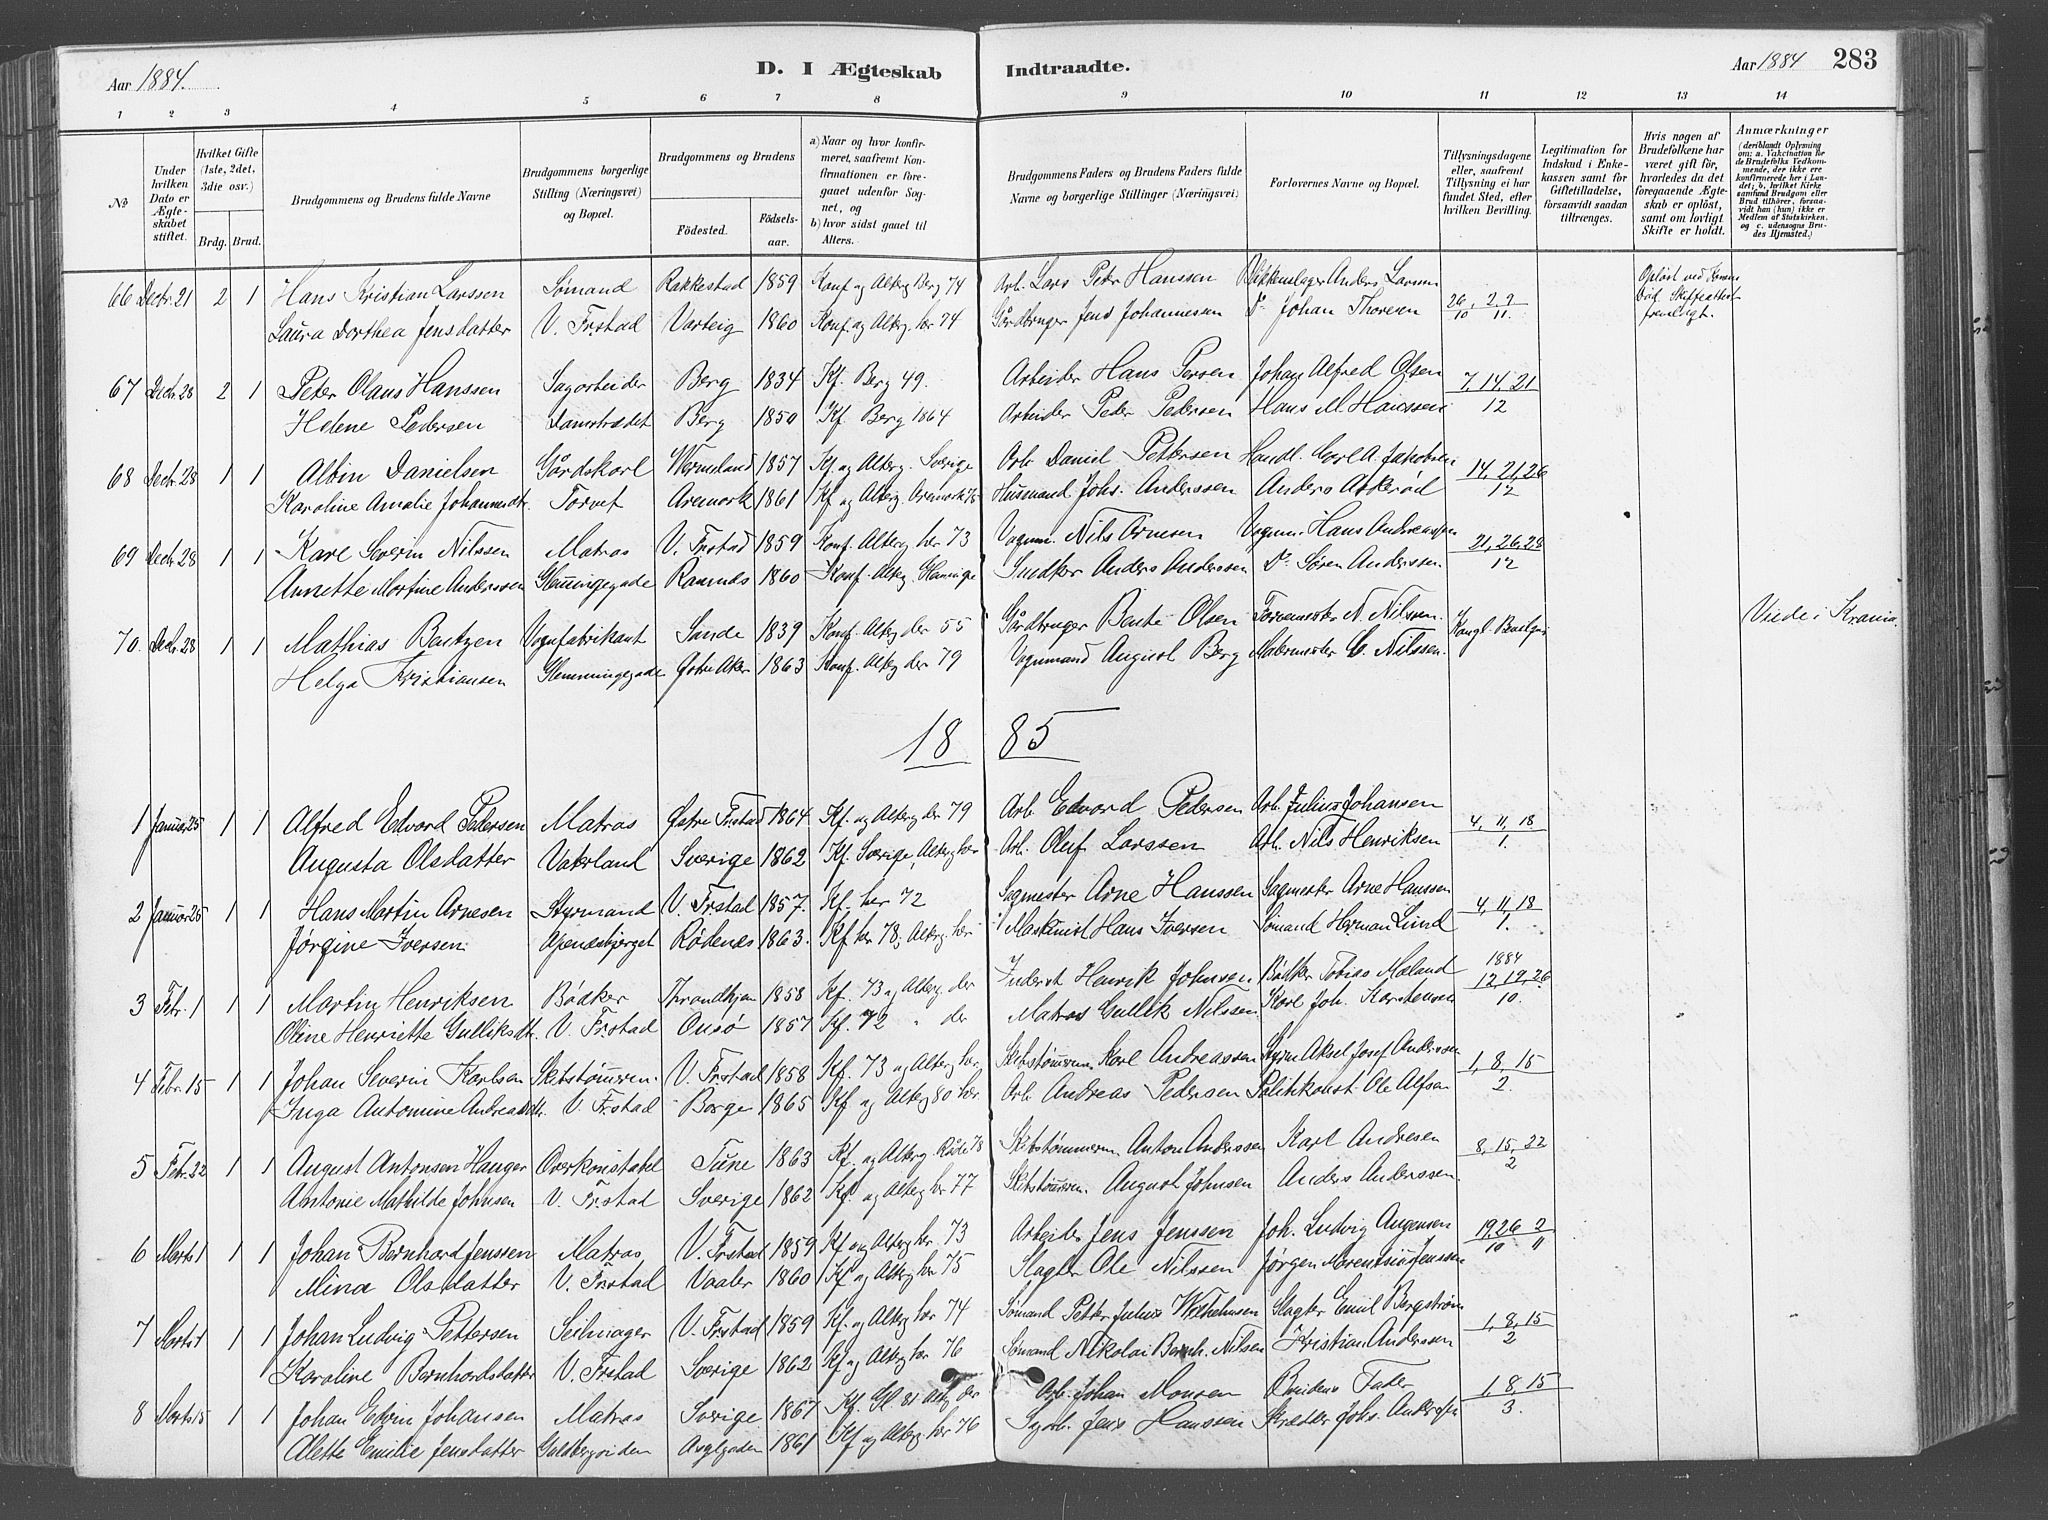 Aar 1884. D. I Ægteskab Indtraadte. Aar 1884 283
1 2 3 4 5 6 7 8 9 10 11 12 13 14
No
Under hvilken Dato er Ægteskabet stiftet.
Hvilket Gifte (1ste, 2det, 3die osv.)
Brdg. Brud.
Brudgommens og Brudens fulde Navne
Brudgommens borgerlige Stilling (Næringsvei) og Bopæl.
Brudgommens og Brudens
Fødested. Fødselsaar.
a) Naar og hvor konfirmeret, saafremt Konfirmationen er foregaaet udenfor Sognet, og
b) hvor sidst gaaet til Alters.
Brudgommens Faders og Brudens Faders fulde Navne og borgerlige Stillinger (Næringsvei)
Forlovernes Navne og Bopæl.
Tillysningsdagene eller, saafremt Tillysning ei har fundet Sted, efter hvilken Bevilling.
Legitimation for Indskud i Enkekassen samt for Giftetilladelse, forsaavidt saadan tiltrænges.
Hvis nogen af Brudefolkene har været gift før, hvorledes da det foregaaende Ægteskab er opløst, samt om lovligt Skifte er holdt.
Anmærkninger (deriblandt Oplysning om: a. Vakcination for de Brudefolks Vedkommende, der ikke ere konfirmerede her i Landet; b. hvilket Kirkesamfund Brudgom eller Brud tilhører, forsaavidt han (hun) ikke er Medlem af Statskirken, og c. udensogns Brudes Hjemsted.)
66 Decbr. 21 2 1 Hans Kristian Larssen Sømand Rakkestad 1859 Konf. og Alterg. Berg 74 Arb. Lars Peter Hanssen Anders Larsen 26/10, 2, 9/11
Laura Dorthea Jensdatter V. Frstad Varteig 1860 Konf. og Alterg. her 74 Gårdbruger Jens Johannessen Do Johan Thoresen
67 Decbr. 28 2 1 Peter Olaus Hanssen Sagarbeider Berg 1834 Kf. Berg 49. Arbeider Hans Persen Johan Alfred Olsen 7, 14, 21/12
Helene Pedersen Damstrædet Berg 1850 Kf. Berg 1864 Arbeider Peder Pedersen Hans M. Hanssen
68 Decbr. 28 1 1 Albin Danielsen Gårdskarl Wermeland 1857 Kf. og Alterg. Sverige Arb. Daniel Pettersen Handl. Carl A. Jakobsen 14, 21, 26/12
Karoline Amalie Johannesdtr. Torvet Aremark 1861 Kf og Alterg. Aremark 76 Husmand Johs. Anderssen Anders Askerød
69 Decbr. 28 1 1 Karl Severin Nilssen Matros V. Frstad 1859 Konf. Alterg. her 73 Vognm. Nils Arnesen Vognm. Hans Andreassen 21, 26, 28/12
Annette Martine Anderssen Glemmingegade 1860 Konf. Alterg. Glemminge Snedker Anders Anderssen Do Søren Anderssen.
70. Decbr. 28 1 1 Mathias Bentzen Vognfabrikant Sande 1839 Konf. Alterg. der 55 Gårdbruger Bente Olsen N. Nilssen. Kongl. Viede i Krania.
Helga Kristiansen Glemmingegade Østre Aker 1863 Konf. Alterg. der 79 Vognmand August Berg Malermester C. Nilssen.
18 85
1 Januar 25 1 1 Alfred Edvard Pedersen Matros Østre Frstad 1864 Kf. og Alterg. der 79 Arb. Edvard Pedersen Arb. Julius Johansen 4, 11, 18/1.
Augusta Olsdatter Vaterland Sverige 1862 Kf. Sverige, Alterg. her Arb. Oluf Larssen Arb. Nils Henriksen
2 Januar 25 1 1 Hans Martin Arnesen Styrmand V. Frstad 1857. Kf. her 72 Sagmester Arne Hanssen Sagmester Arne Hanssen 4, 11, 18/1.
Jørgine Iversen Apenesbjerget Rødenes 1863. Kf. her 78, Alterg. her Maskinist Hans Iversen Sømand Herman Lund
3 Febr. 1 1 1 Martin Henriksen Bødker Throndhjem 1858 Kf. 73 og Alterg. der Inderst Henrik Johnsen Bødker Tobias Mæland 1884 12, 19, 26/10.
Oline Henriette Gulliksdtr. V. Frstad Onsø 1857 Kf. 72 " der Matros Gullik Nilssen Karl Joh. Karstensen
4 Febr. 15 1 1 Johan Severin Karlsen Skibstømrm. V. Frstad 1858 Kf. 73 og Alterg. her. Skibstømrm. Karl Andreassen Styrm. Aksel Josef Anderssen 1, 8, 15/2.
Inga Antomine Andreasdtr. V. Frstad Borge 1865 Kf. og Alterg. 80 her. Arb. Andreas Pedersen Politikonst. Ole Alfsen
5 Febr. 22 1 1 August Antonsen Hauger Overkonstabel Tune 1863 Kf. og Alterg. Råde 78 Skibstømmerm. Anton Anderssen Karl Andresen 8, 15, 22/2
Antonie Mathilde Johnsen V. Frstad Sverige 1862 Kf. og Alterg. her 77 Skibstømrm. August Johnsen Anders Anderssen.
6 Marts 1 1 1 Johan Bernhard Jenssen Matros V. Frstad 1859 Kf og Alterg her. 73 Arbeider Jens Jenssen Joh. Ludvig Augensen 19, 26/10 2/11
Mina Olsdatter V. Frstad Vaaler 1860 Kf og Alterg. her 75 Slagter Ole Nilssen Jørgen Marentsius Jenssen
7 Marts 1 1 1 Johan Ludvig Pettersen Seilmager V. Frstad 1859 Kf. og Alterg her 74 Sømand Petter Julius Wilhelmsen Slagter Emil Bergstrøm 1, 8, 15/2
Karoline Bernhardsdatter V. Frstad Sverige 1862 Kf og Alterg her 76 Sømand Nikolai Bernh. Nilsen Kristian Anderssen
8 Marts 15 1 1 Johan Edvin Johansen Matros Sverige 1867 Kf. Gl 81 der Arb. Johan Monsen Brudens Fader 1, 8, 15/3.
Alette Emilie Jensdatter 1861 Kf og Alterg her 76 Sagarb. Jens Hanssen Skrædder Johs. Anderssen